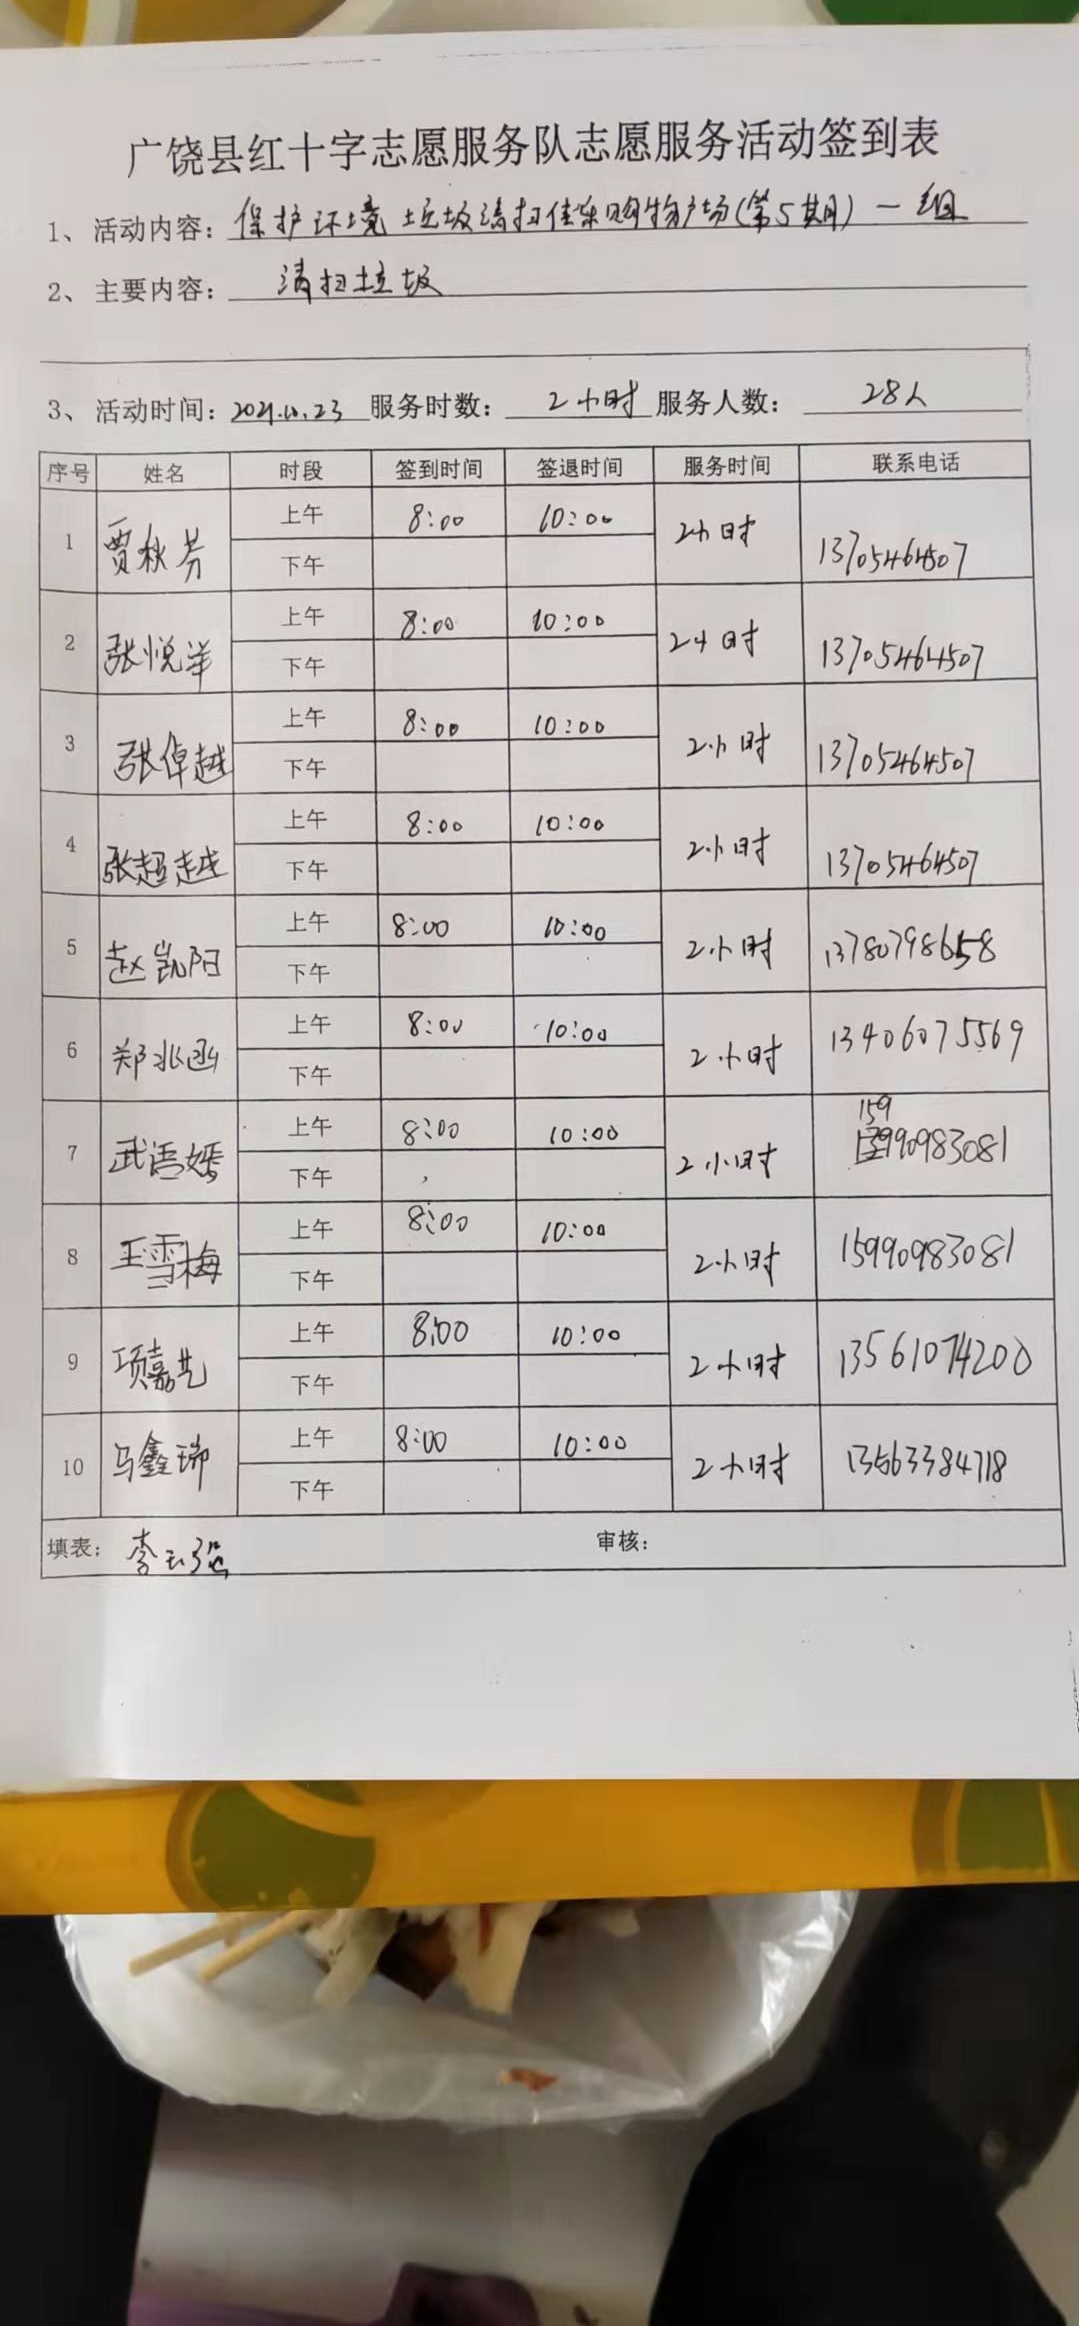 广饶县红十字志愿服务队志愿服务活动签到表
1、活动内容：保护环境 垃圾清扫佳乐购物广场(第5期) 一组
2、主要内容：清扫垃圾
3、活动时间：2021.10.23 服务时数：2小时 服务人数：28人
序号 姓名 时段 签到时间 签退时间 服务时间 联系电话
1 贾秋芳 上午 8:00 10:00 2小时 13705464507
下午
2 张悦洋 上午 8:00 10:00 2小时 13705464507
下午
3 张卓越 上午 8:00 10:00 2小时 13705464507
下午
4 张超越 上午 8:00 10:00 2小时 13705464507
下午
5 赵凯阳 上午 8:00 10:00 2小时 13780798658
下午
6 郑兆函 上午 8:00 10:00 2小时 13406075569
下午
7 武语嫣 上午 8:00 10:00 2小时 15990983081
下午
8 王雪梅 上午 8:00 10:00 2小时 15990983081
下午
9 项嘉艺 上午 8:00 10:00 2小时 13561074200
下午
10 马鑫瑞 上午 8:00 10:00 2小时 13563384718
下午
填表：李玉强 审核：